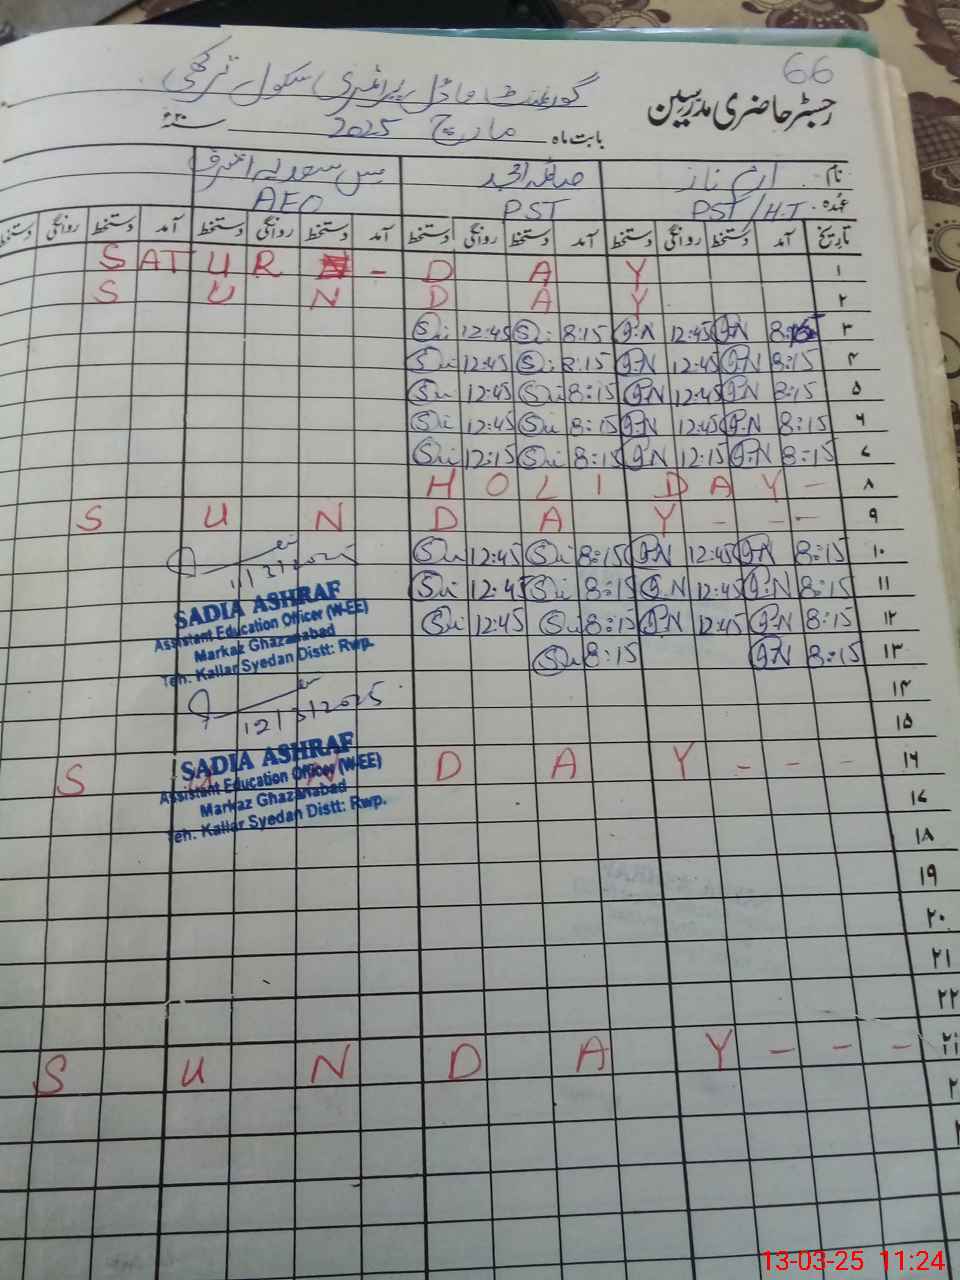 66
رجسٹر حاضری مدرسین
گورنمنٹ ماڈل پرائمری سکول ترکھی
بابت ماہ مارچ 2025 سنہ ۲۰ء
نام ارم ناز صائمہ امجد مس سعدیہ اشرف
عہدہ PST/H.T PST AEO
تاریخ آمد دستخط روانگی دستخط آمد دستخط روانگی دستخط آمد دستخط روانگی دستخط آمد دستخط روانگی دستخط
۱ S AT U R - D A Y
۲ S U N D A Y
۳ 8:15 I.N 12:45 I.N 8:15 Su 12:45 Su
۴ 8:15 I.N 12:45 I.N 8:15 Su 12:45 Su
۵ 8:15 I.N 12:45 I.N 8:15 Su 12:45 Su
۶ 8:15 I.N 12:45 I.N 8:15 Su 12:45 Su
۷ 8:15 I.N 12:15 I.N 8:15 Su 12:15 Su
۸ H O L I D A Y -
۹ S U N D A Y - - -
۱۰ 8:15 I.N 12:45 I.N 8:15 Su 12:45 Su
۱۱ 8:15 I.N 12:45 I.N 8:15 Su 12:45 Su
۱۲ 8:15 I.N 12:45 I.N 8:15 Su 12:45 Su
۱۳ 8:15 I.N 8:15 Su
11/3/2025
SADIA ASHRAF
Assistant Education Officer (W-EE)
Markaz Ghazanabad
Teh. Kallar Syedan Distt: Rwp.
12/3/2025
SADIA ASHRAF
Assistant Education Officer (W-EE)
Markaz Ghazanabad
Teh. Kallar Syedan Distt: Rwp.
۱۴
۱۵
۱۶ S U N D A Y - - -
۱۷
۱۸
۱۹
۲۰
۲۱
۲۲
S U N D A Y - - -
13-03-25 11:24